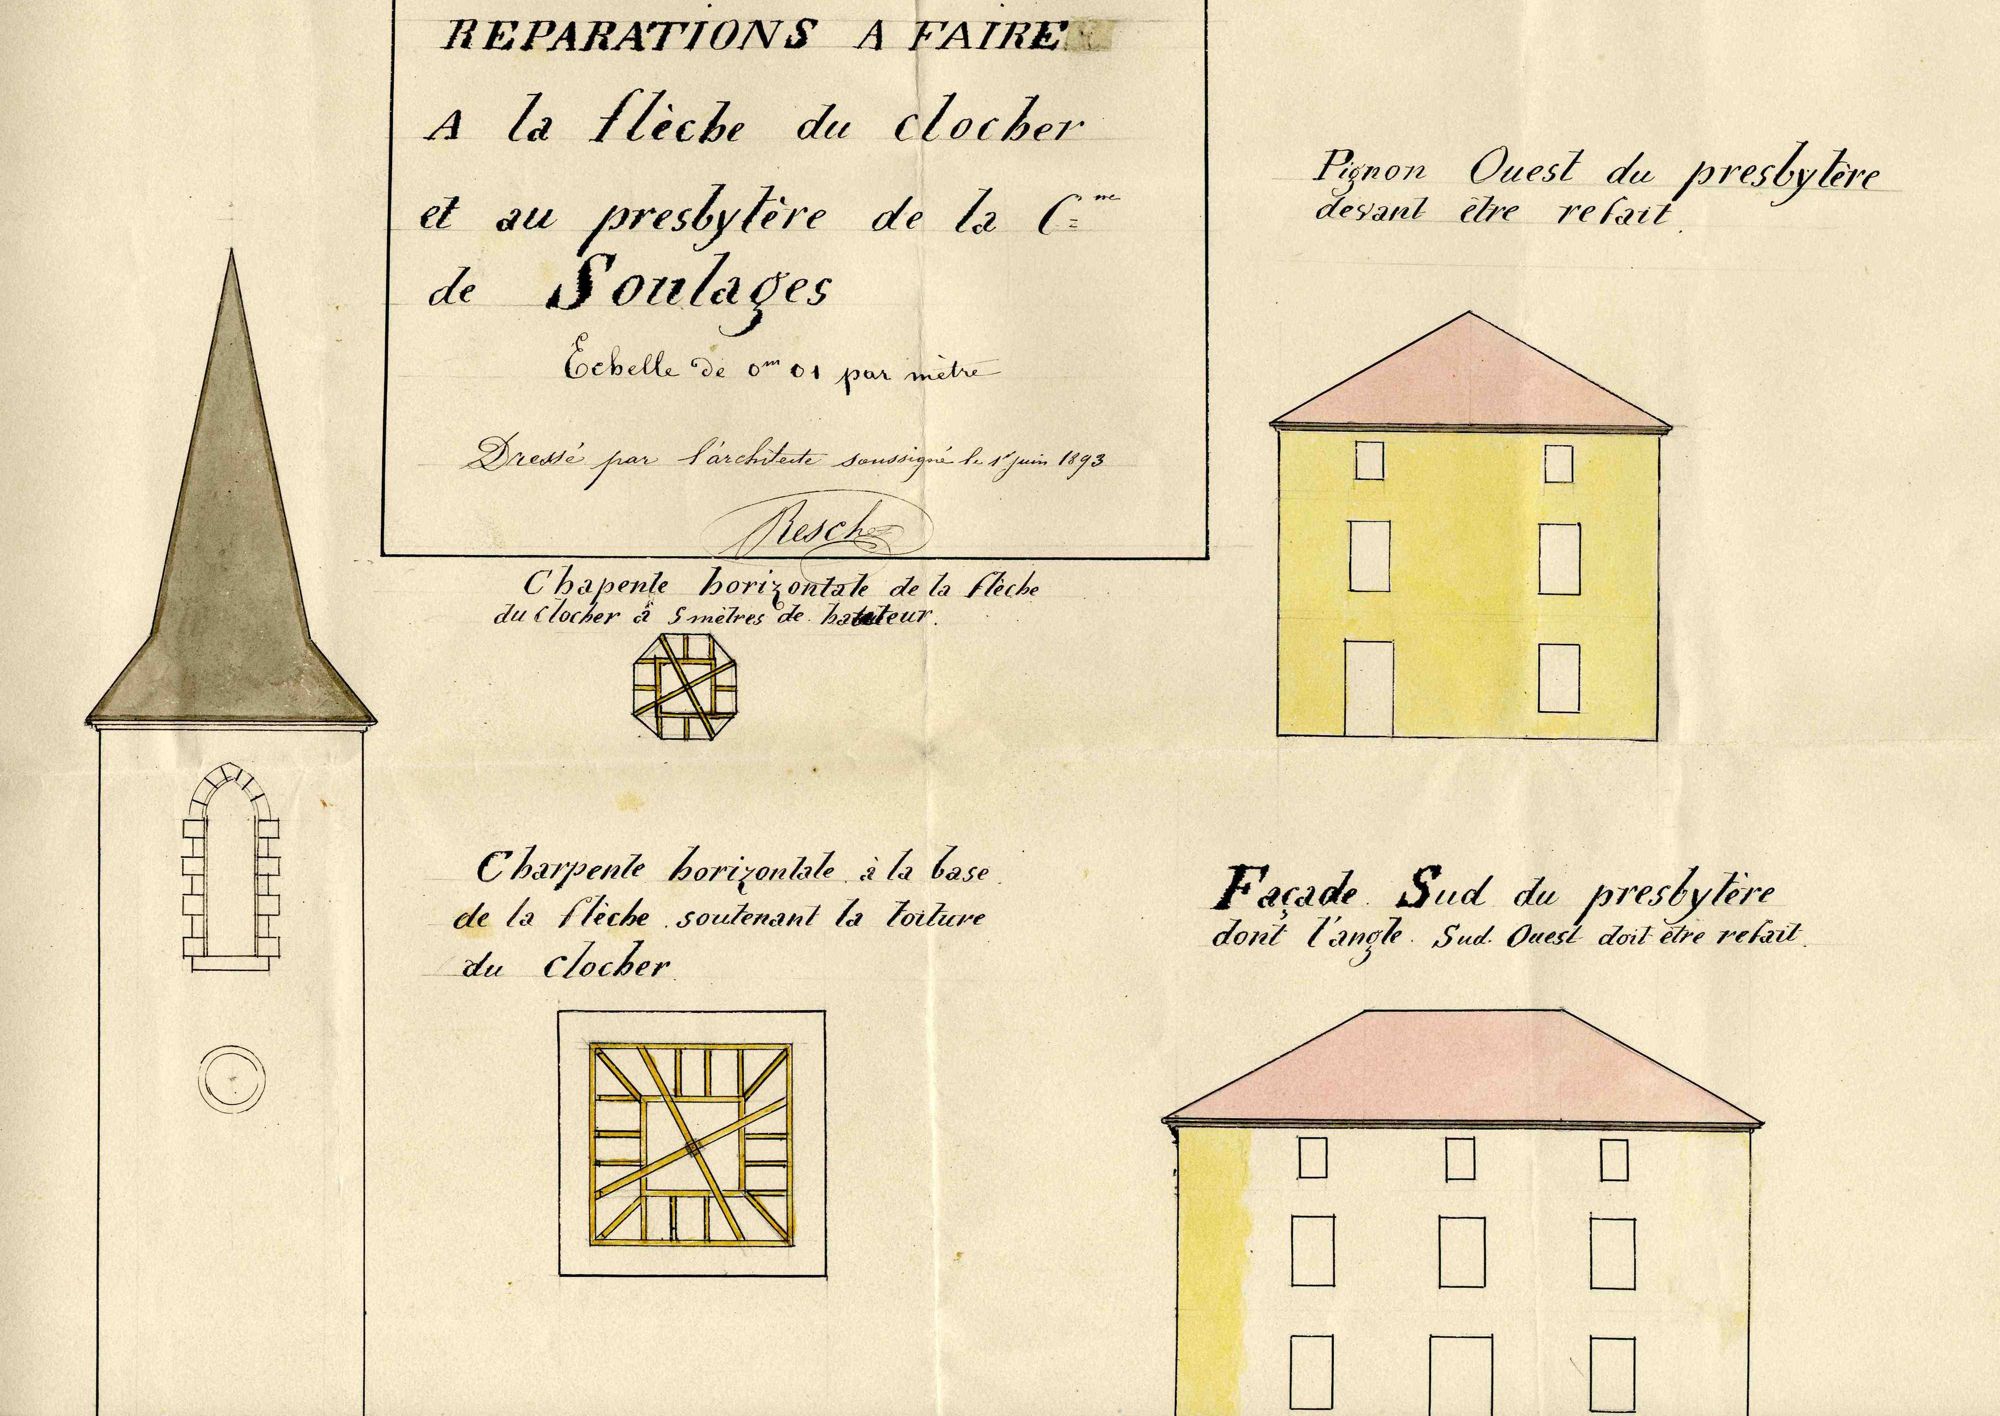 REPARATIONS A FAIRE
A la flèche du clocher
et au presbytère de la Cne
de Soulages
Echelle de 0m 01 par mètre
Dressé par l'architecte soussigné le 1er juin 1893
Resch
Chapente horizontale de la flèche
du clocher à 5 mètres de hauteur.
Charpente horizontale à la base
de la flèche soutenant la toiture
du clocher
Pignon Ouest du presbytère
devant être refait.
Façade Sud du presbytère
dont l'angle Sud Ouest doit être refait.